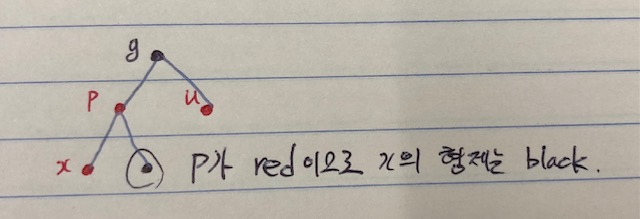 g
P u
x P가 red이므로 x의 형제는 black.